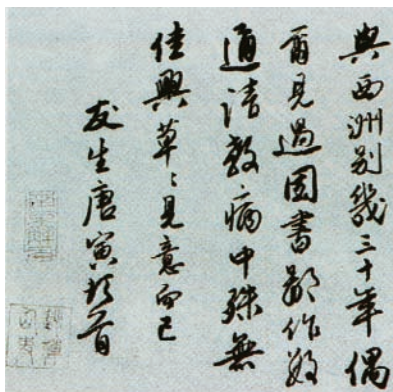 與西洲別幾三十年偶
爾見過因書鄙作數
通請教病中殊無
佳興草々見意而已
友生唐寅頓首